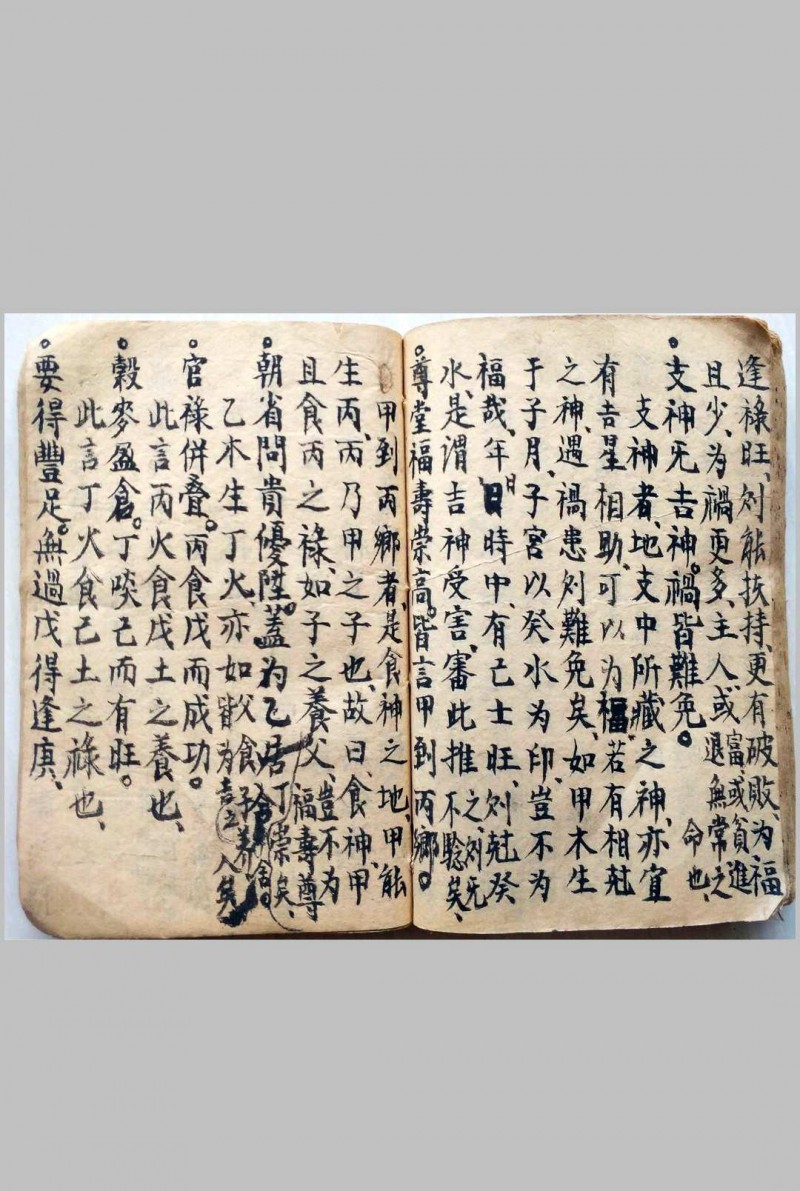 逢祿旺、則能扶持、更有破敗、為福
且少、為禍更多、主人、或富、或貧、進退無常之命也、
支神旡吉神。禍皆難免。
支神者、地支中所藏之神、亦宜
有吉星相助、可以為福、若有相尅
之神、遇禍患則難免矣、如甲木生
于子月、子宮以癸水為印、豈不為
福哉、年日時中、有己土旺、則尅癸
水、是謂吉神受害、審此推之、則旡不驗矣、
尊堂福壽崇高。皆言甲到丙鄉。
甲到丙鄉者、是食神之地、甲能
生丙、丙乃甲之子也、故曰、食神、甲
且食丙之祿、如子之養父、豈不為福壽尊
朝省問貴優陞。蓋为乙居丁 崇矣、
乙木生丁火、亦如父食子養、皆为吉 人矣
官祿併叠。丙食戊而成功。
此言丙火食戊土之養也、
穀麥盈倉。丁啖己而有旺。
此言丁火食己土之祿也、
要得豐足。無過戊得逢庚、